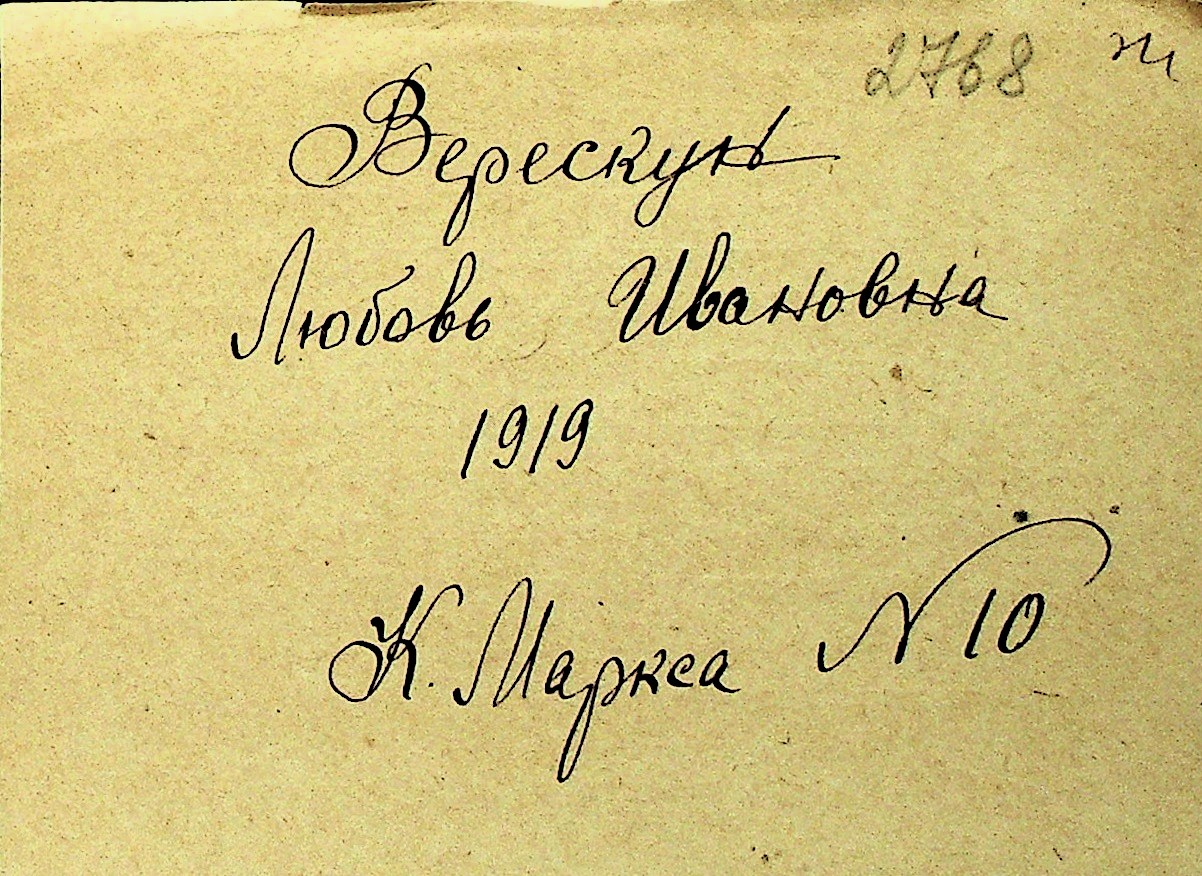 2768
Верескун
Любовь Ивановна
1919
К. Маркса N 10